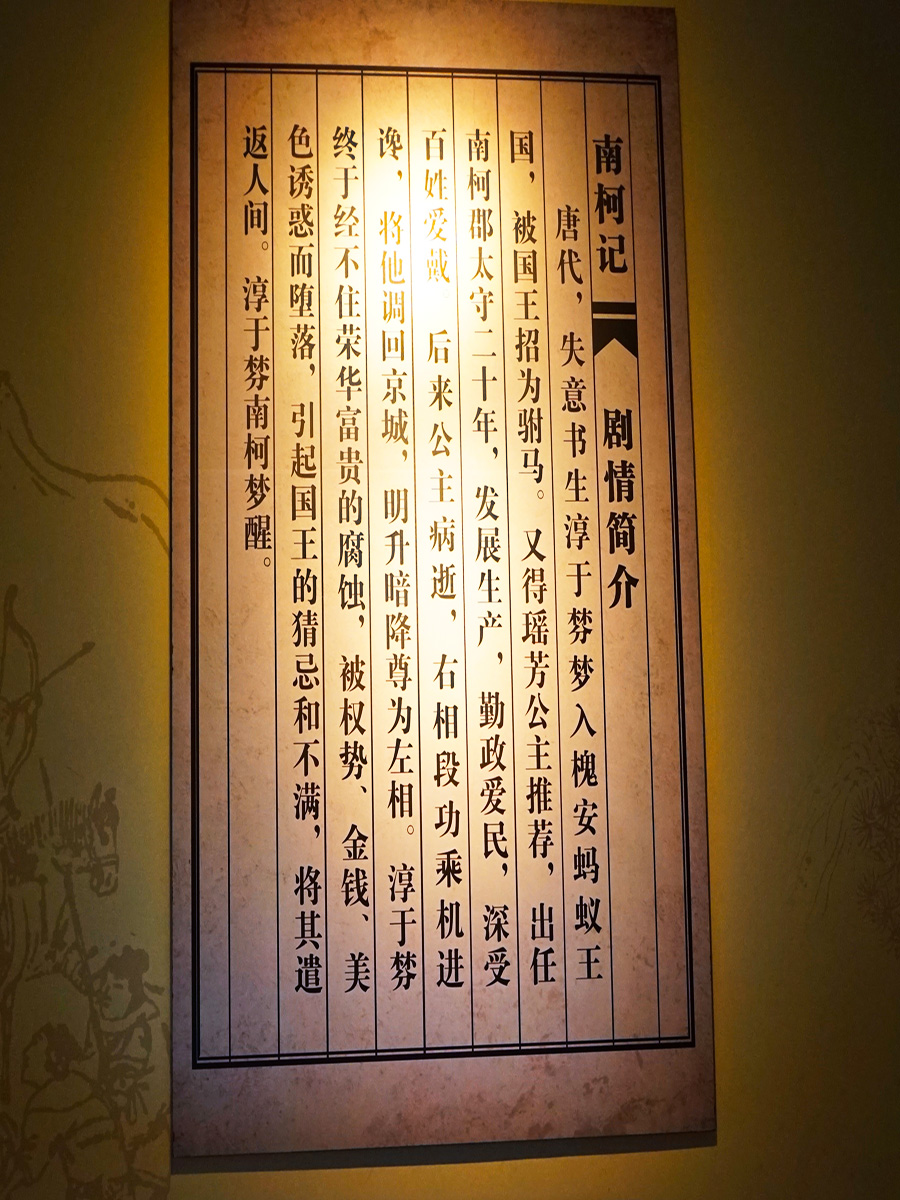 南柯记 剧情简介
唐代，失意书生淳于棼梦入槐安蚂蚁王
国，被国王招为驸马。又得瑶芳公主推荐，出任
南柯郡太守二十年，发展生产，勤政爱民，深受
百姓爱戴 后来公主病逝，右相段功乘机进
谗，将他调回京城，明升暗降尊为左相。淳于棼
终于经不住荣华富贵的腐蚀，被权势、金钱、美
色诱惑而堕落，引起国王的猜忌和不满，将其遣
返人间。淳于棼南柯梦醒。